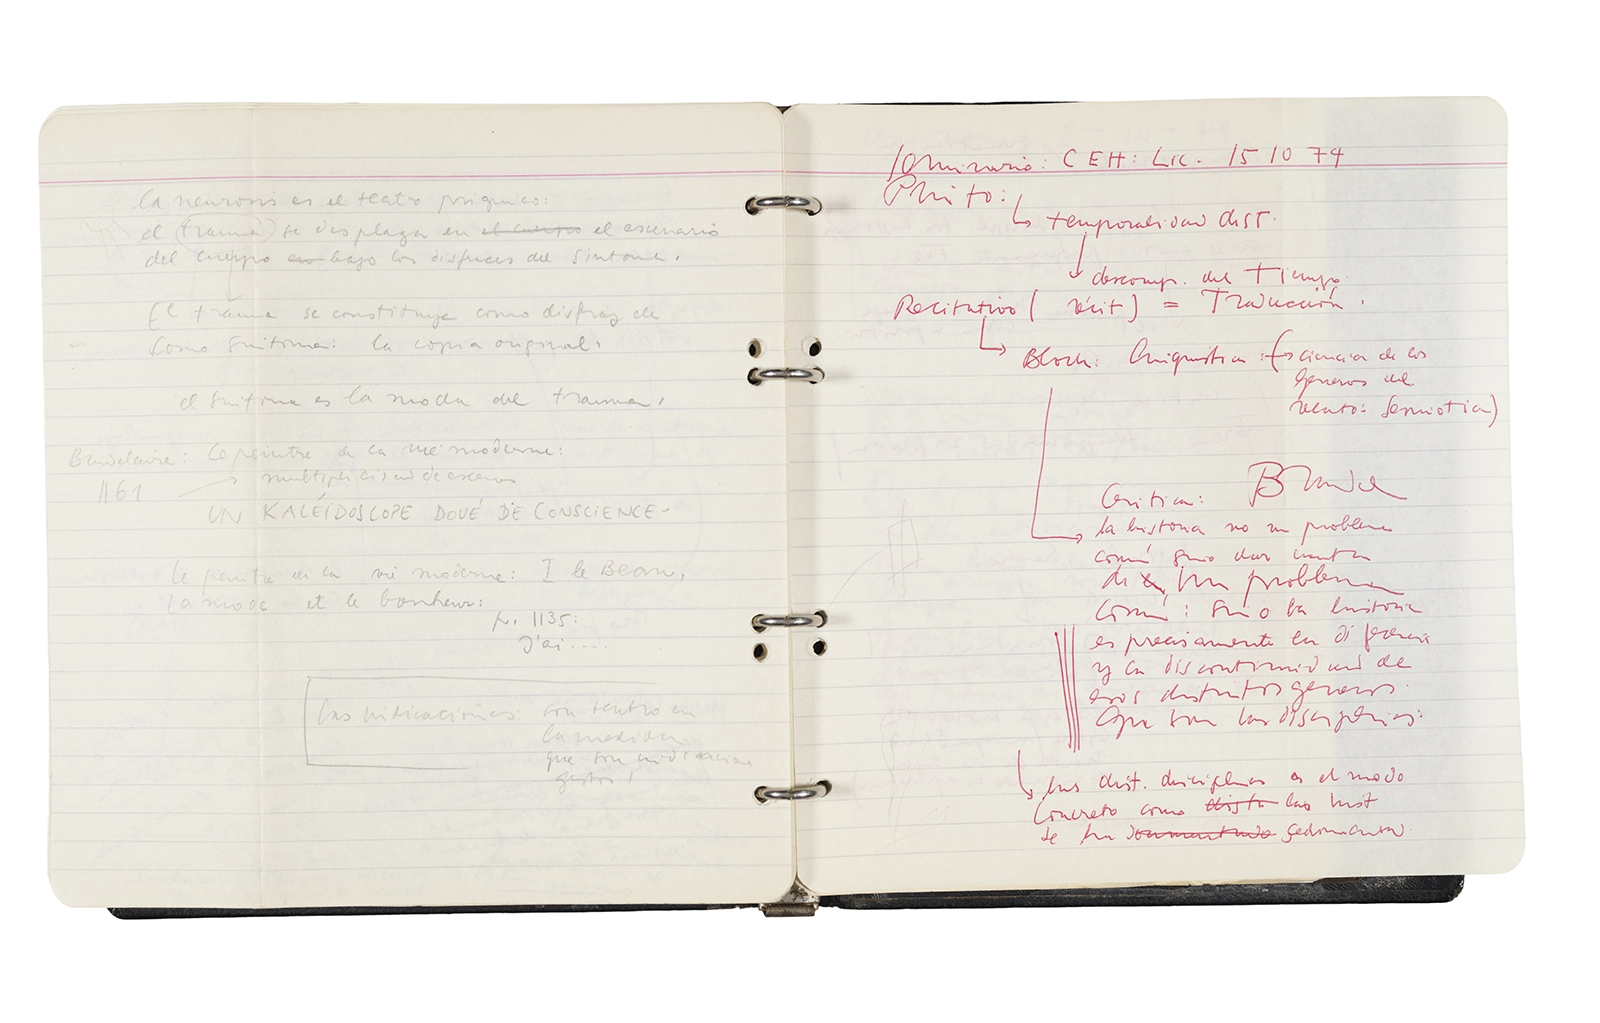 la neurosis es el teatro psíquico:
el trauma se desplaza en el cuerpo el escenario
del cuerpo en bajo los disfraces del síntoma.
El trauma se constituye como disfraz de
como síntoma: la copia original.
el síntoma es la moda del trauma.
Baudelaire: Le peintre de la vie moderne:
1161 multiplicidad de escenas
UN KALÉIDOSCOPE DOUÉ DE CONSCIENCE -
Le peintre de la vie moderne: I le Beau,
la mode et le bonheur:
p. 1135:
J'ai ....
Las indicaciones: son teatro en
la medida
que son indicacion
gestos!
Seminario: CEH: Lic. 15 10 74
temporalidad dist.
descomp. del Tiempo
Recitativo (récit) = Traducción.
Bloch: Linguística: (ciencia de los
géneros del
relato: Semiotica)
Critica:
la historia no un problema
común sino dar cuenta
de un problema
común: sino la historia
es precisamente la diferencia
y la discontinuidad de
esos distintos géneros
que son las disciplinas:
las dist. disciplinas es el modo
concreto como las hist
se ha sedimentado